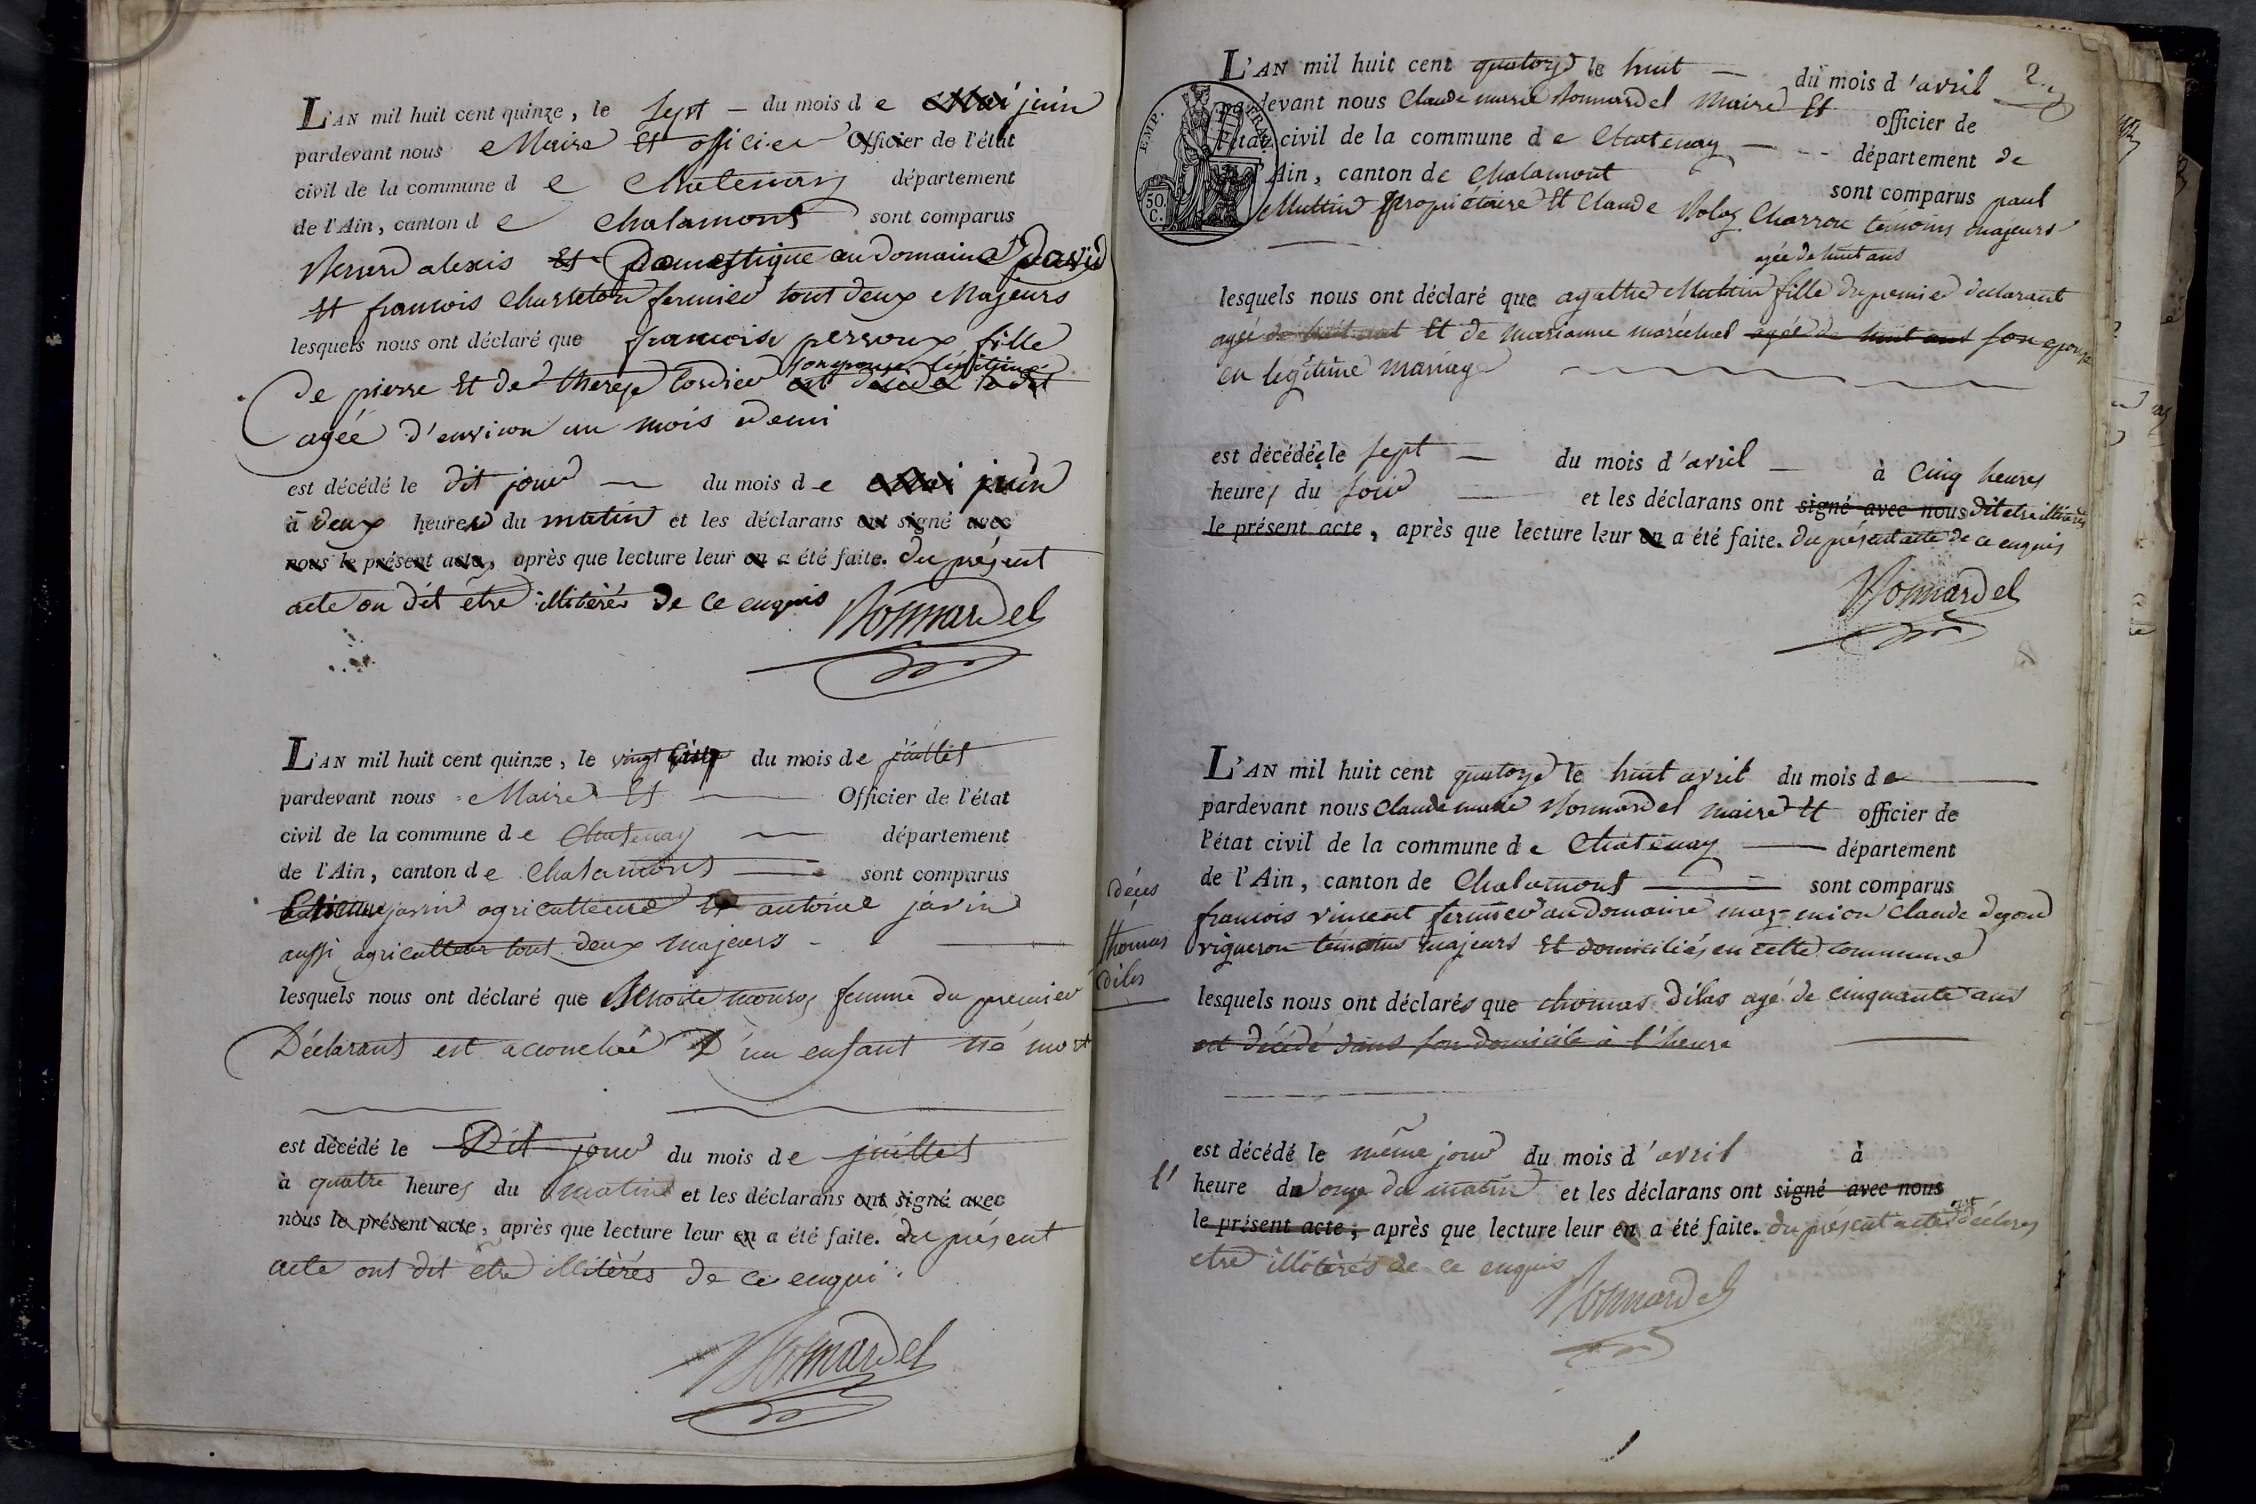 L'AN mil huit cent quinze, le sept - du mois d e juin
pardevant nous Maire Et officier Officier de l'état
civil de la commune d e Chatenay département
de l'Ain, canton d e Chalamont sont comparus
alexis Et Domestique au Domaine
Et francois Charreton fermier tout deux Majeurs
lesquels nous ont déclaré que francoise perroux fille
son epouse légitime
De pierre Et De therese Cordier est décédé le dit
agée D'environ un mois Demi
est décédé le dit jour du mois d e juin
à Deux heures du matin et les déclarans ont signé avec
nous le présent acte, après que lecture leur en a été faite. Du présent
acte on Dit etre illiterés De Ce enquis
Nonnardel
L'AN mil huit cent quinze, le vingt Cinq du mois de juillet
pardevant nous Maire Et Officier de l'état
civil de la commune de Chatenay département
de l'Ain, canton de Chalamont sont comparus
javin agriculteur Et antoine javin
aussi agriculteur tout deux majeurs -
lesquels nous ont déclaré que Benoite femme du premier
Déclarant est accouchée D'un enfant né mort
est décédé le Dit jour du mois de juillet
à quatre heures du matin et les déclarans ont signé avec
nous le présent acte, après que lecture leur en a été faite. du présent
acte ont dit etre illiterés De Ce enqui.
Nonnardel
2.
L'AN mil huit cent quatorze le huit - du mois d'avril
pardevant nous Claude marie Nonnardel Maire Et officier de
l'état civil de la commune d e Chatenay - - département de
l'Ain, canton de Chalamont sont comparus paul
EMP.
50.
C.
Muttin propriétaire Et Claude Charron temoins majeurs
agée de huit ans
lesquels nous ont déclaré que agathe Muttin fille du premier declarant
agée de huit ans Et de marianne maréchal agée de huit ans son epouse
en legitime mariage
est décédée le sept - du mois d'avril - à Cinq heures
heures du soir et les déclarans ont signé avec nous dit etre illiterés
le présent acte, après que lecture leur en a été faite. Du présent acte de ce enquis
Nonnardel
L'AN mil huit cent quatorze le huit avril du mois de
pardevant nous Claude marie Nonnardel maire Et officier de
l'état civil de la commune de Chatenay département
de l'Ain, canton de Chalamont sont comparus
décès
thomas
Dilas
francois vincent fermier au domaine Claude
vigneron témoins majeurs Et domiciliés en cette commune
lesquels nous ont déclarés que thomas Dilas agé de cinquante ans
est décédé dans son domicile à l'heure
est décédé le même jour du mois d'avril à
l' heure de onze du matin et les déclarans ont signé avec nous
le présent acte, après que lecture leur en a été faite. du présent acte ont déclarés
etre illiterés de ce enquis
Nonnardel